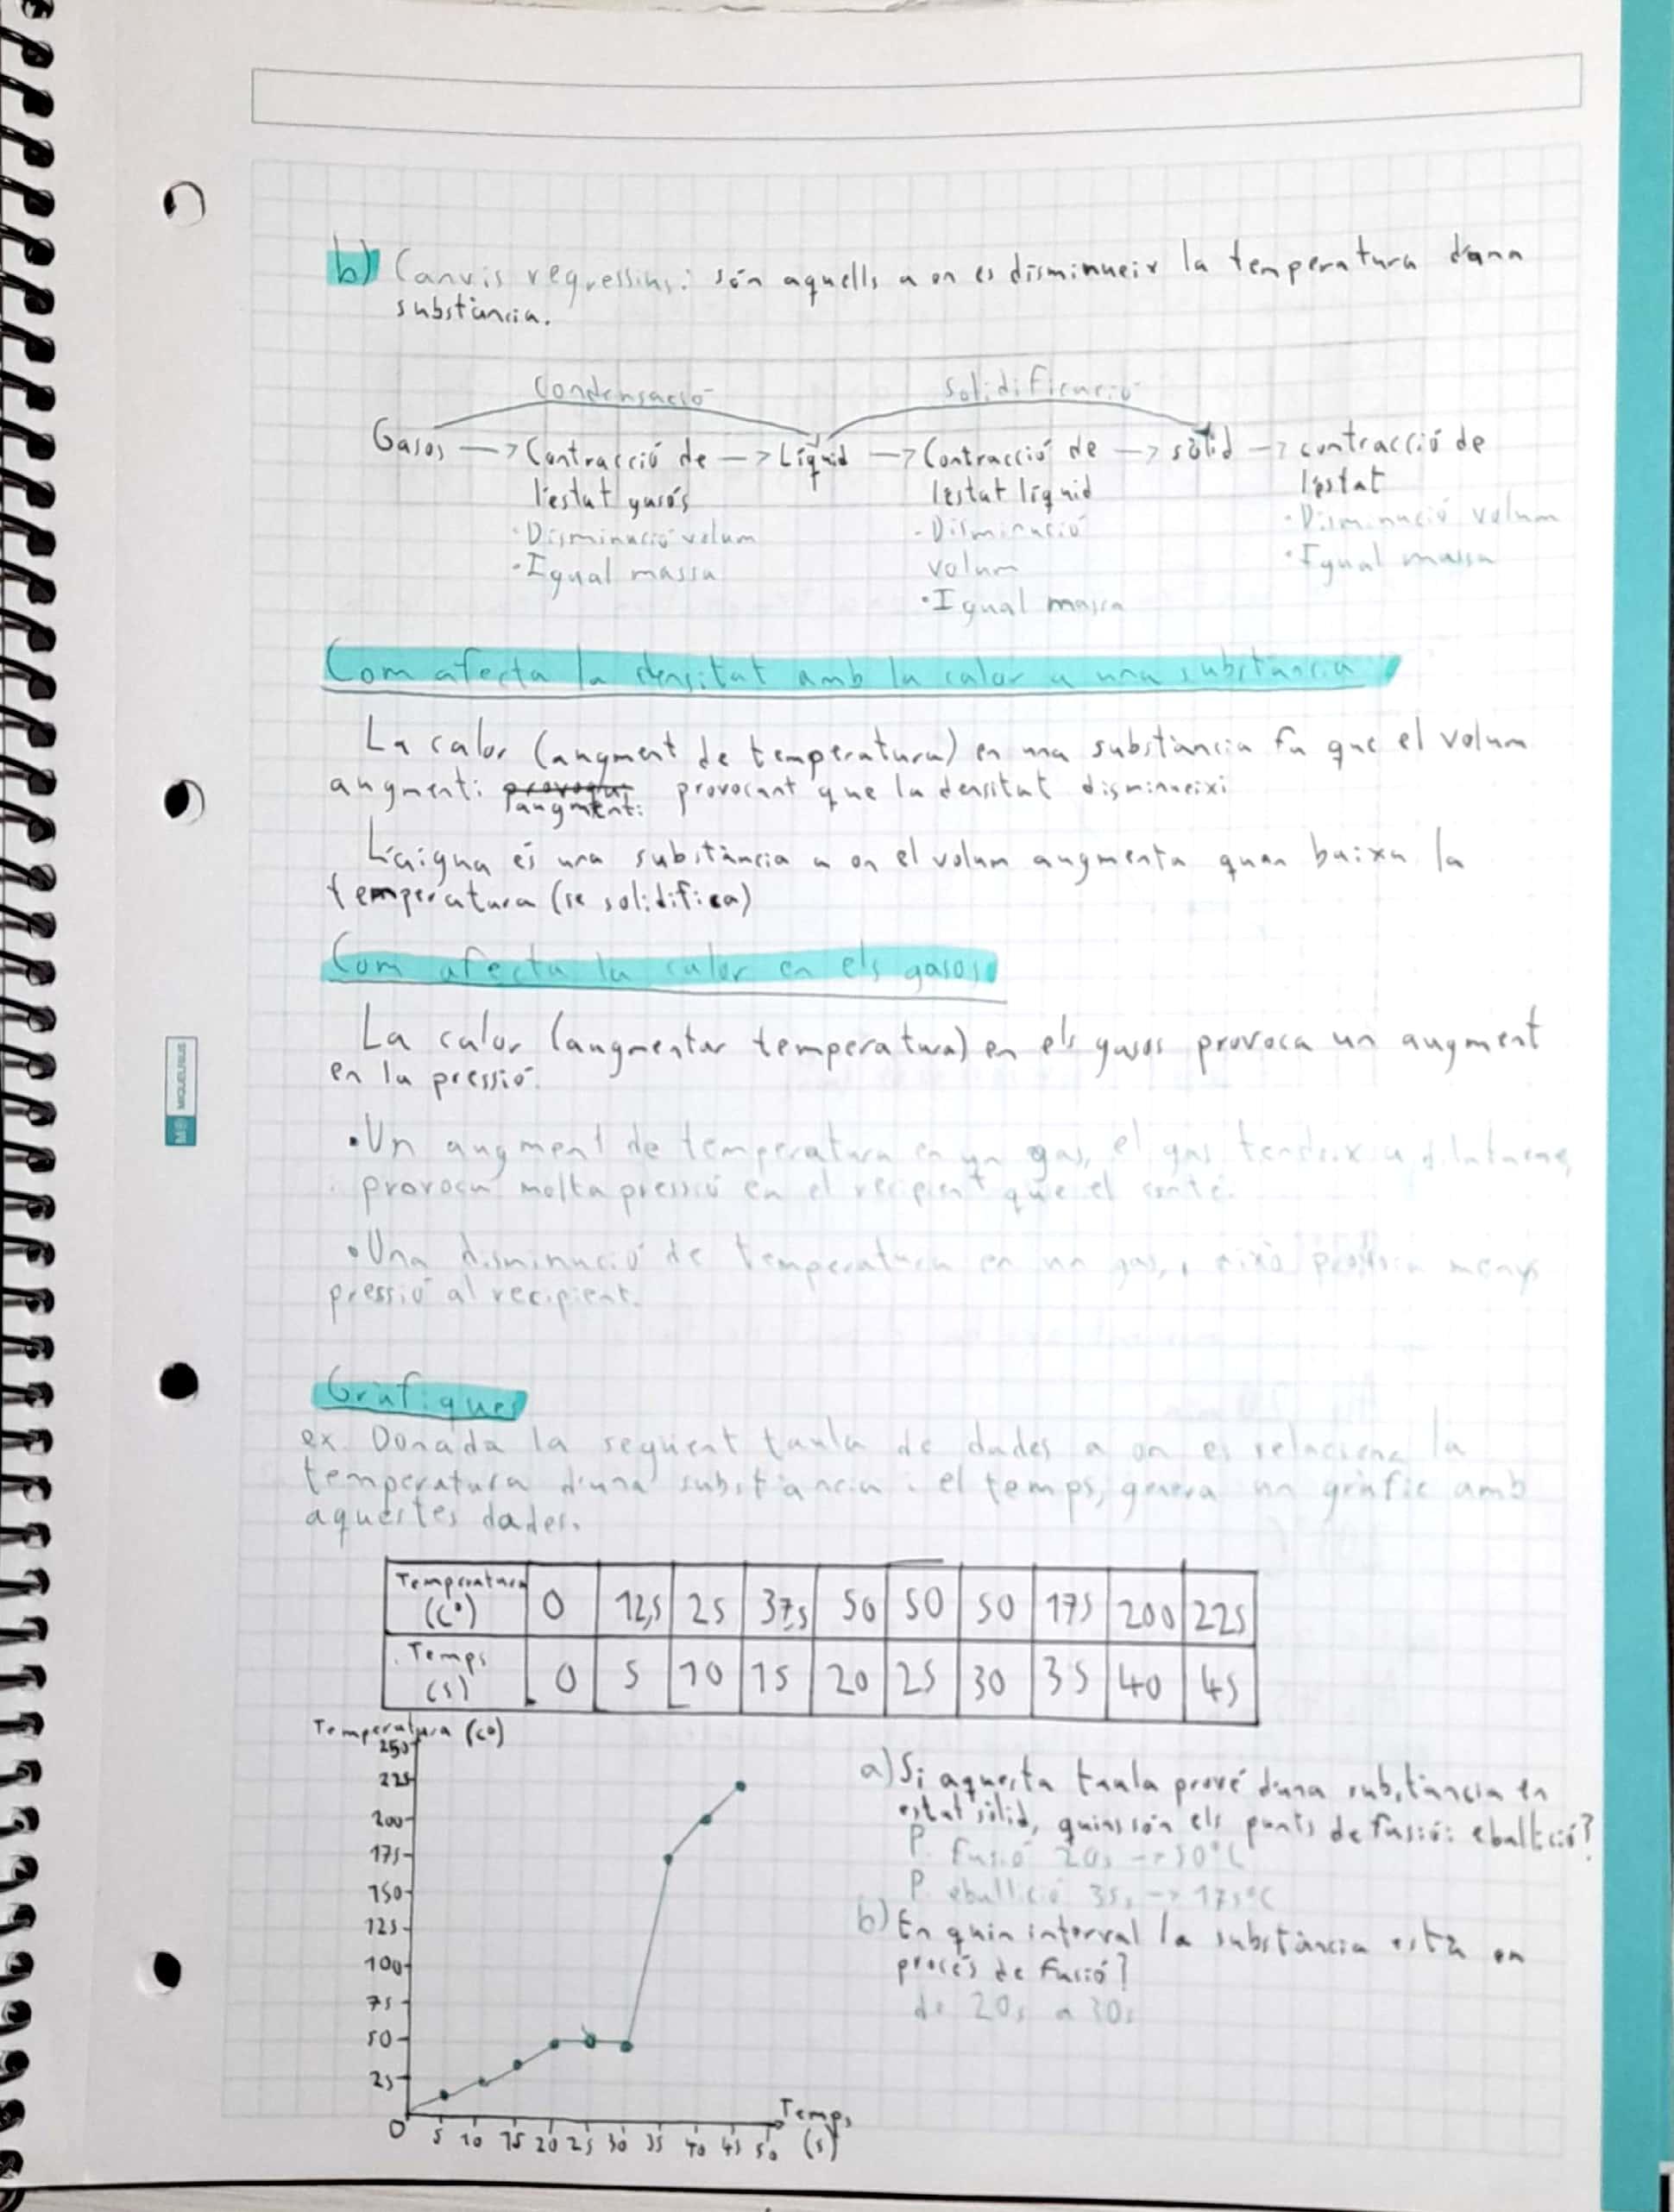 b) Canvis regressius: són aquells a on es disminueix la temperatura d'una
substància.
Condensació
Solidificació
Gasos —> Contracció de —> Líquid —> Contracció de —> sòlid —> contracció de
l'estat gasós
l'estat líquid
l'estat
· Disminució volum
· Igual massa
- Disminució
volum
· Igual massa
· Disminució volum
· Igual massa
Com afecta la densitat amb la calor a una substància
La calor (augment de temperatura) en una substància fa que el volum
augmenti provocant que la densitat disminueixi
L'aigua és una substància a on el volum augmenta quan baixa la
temperatura (se solidifica)
Com afecta la calor en els gasos
La calor (augmentar temperatura) en els gasos provoca un augment
en la pressió.
· Un augment de temperatura en un gas, el gas tendeix a
provoca molta pressió en el recipient que el conté.
· Una disminució de temperatura en un gas, això menys
pressió al recipient.
MIQUELRIUS
Gràfiques
ex. Donada la següent taula de dades a on es relaciona la
temperatura d'una substància i el temps, genera un gràfic amb
aquestes dades.
Temperatura (Cº) 0 12,5 25 37,5 50 50 50 175 200 225
Temps (s) 0 5 10 15 20 25 30 35 40 45
Temperatura (Cº)
250
225
200
175
150
125
100
75
50
25
0 5 10 15 20 25 30 35 40 45 50
Temps
(s)
a) Si aquesta taula prové d'una substància en
estat sòlid, quins són els punts de fusió i ebullició?
P. fusió 20s —> 50°C
P. ebullició 35s —> 175°C
b) En quin interval la substància està en
procés de fusió?
de 20s a 30s